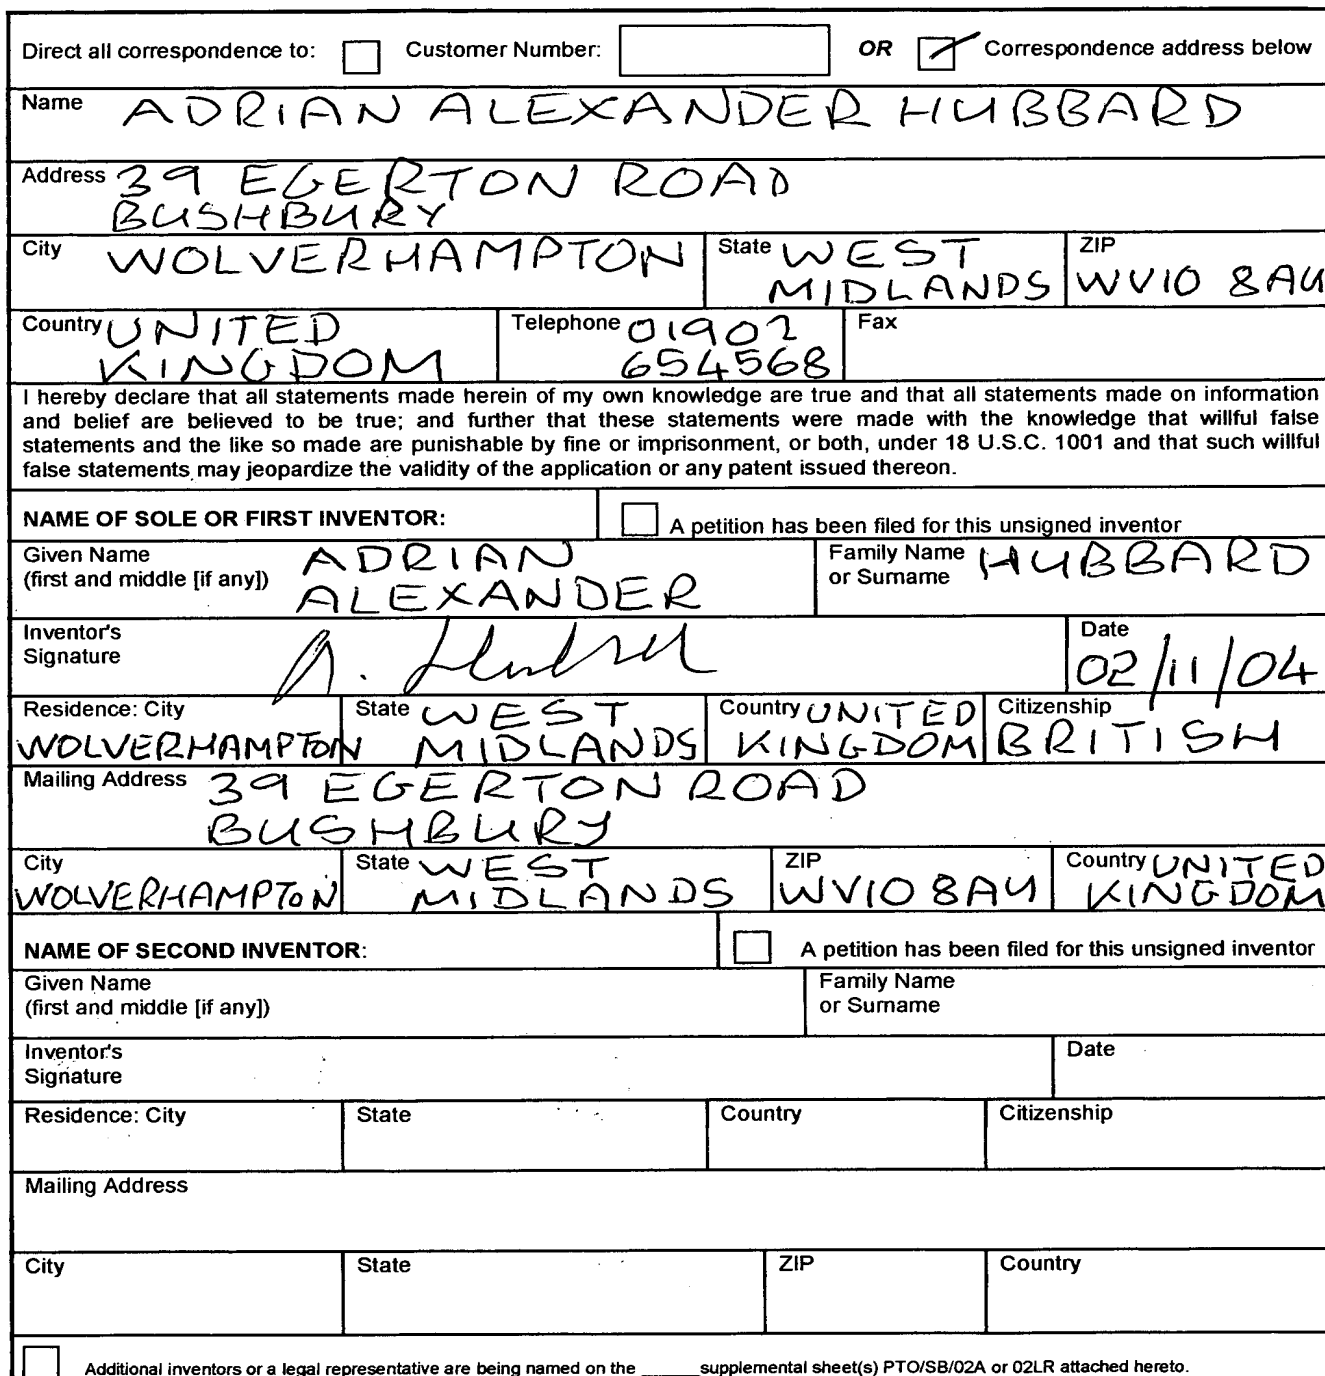 Direct all correspondence to: Customer Number: OR Correspondence address below
Name ADRIAN ALEXANDER HUBBARD
Address 39 EGERTON ROAD
BUSHBURY
City WOLVERHAMPTON State WEST MIDLANDS ZIP WV10 8AU
Country UNITED KINGDOM Telephone 01902 654568 Fax
I hereby declare that all statements made herein of my own knowledge are true and that all statements made on information
and belief are believed to be true; and further that these statements were made with the knowledge that willful false
statements and the like so made are punishable by fine or imprisonment, or both, under 18 U.S.C. 1001 and that such willful
false statements may jeopardize the validity of the application or any patent issued thereon.
NAME OF SOLE OR FIRST INVENTOR: A petition has been filed for this unsigned inventor
Given Name
(first and middle [if any]) ADRIAN
ALEXANDER
Family Name
or Surname HUBBARD
Inventor's
Signature A. Hubbard
Date
02/11/04
Residence: City
WOLVERHAMPTON
State WEST
MIDLANDS
Country UNITED
KINGDOM
Citizenship
BRITISH
Mailing Address 39 EGERTON ROAD
BUSHBURY
City
WOLVERHAMPTON
State WEST
MIDLANDS
ZIP
WV10 8AU
Country UNITED
KINGDOM
NAME OF SECOND INVENTOR: A petition has been filed for this unsigned inventor
Given Name
(first and middle [if any])
Family Name
or Surname
Inventor's
Signature
Date
Residence: City State Country Citizenship
Mailing Address
City State ZIP Country
Additional inventors or a legal representative are being named on the ______supplemental sheet(s) PTO/SB/02A or 02LR attached hereto.